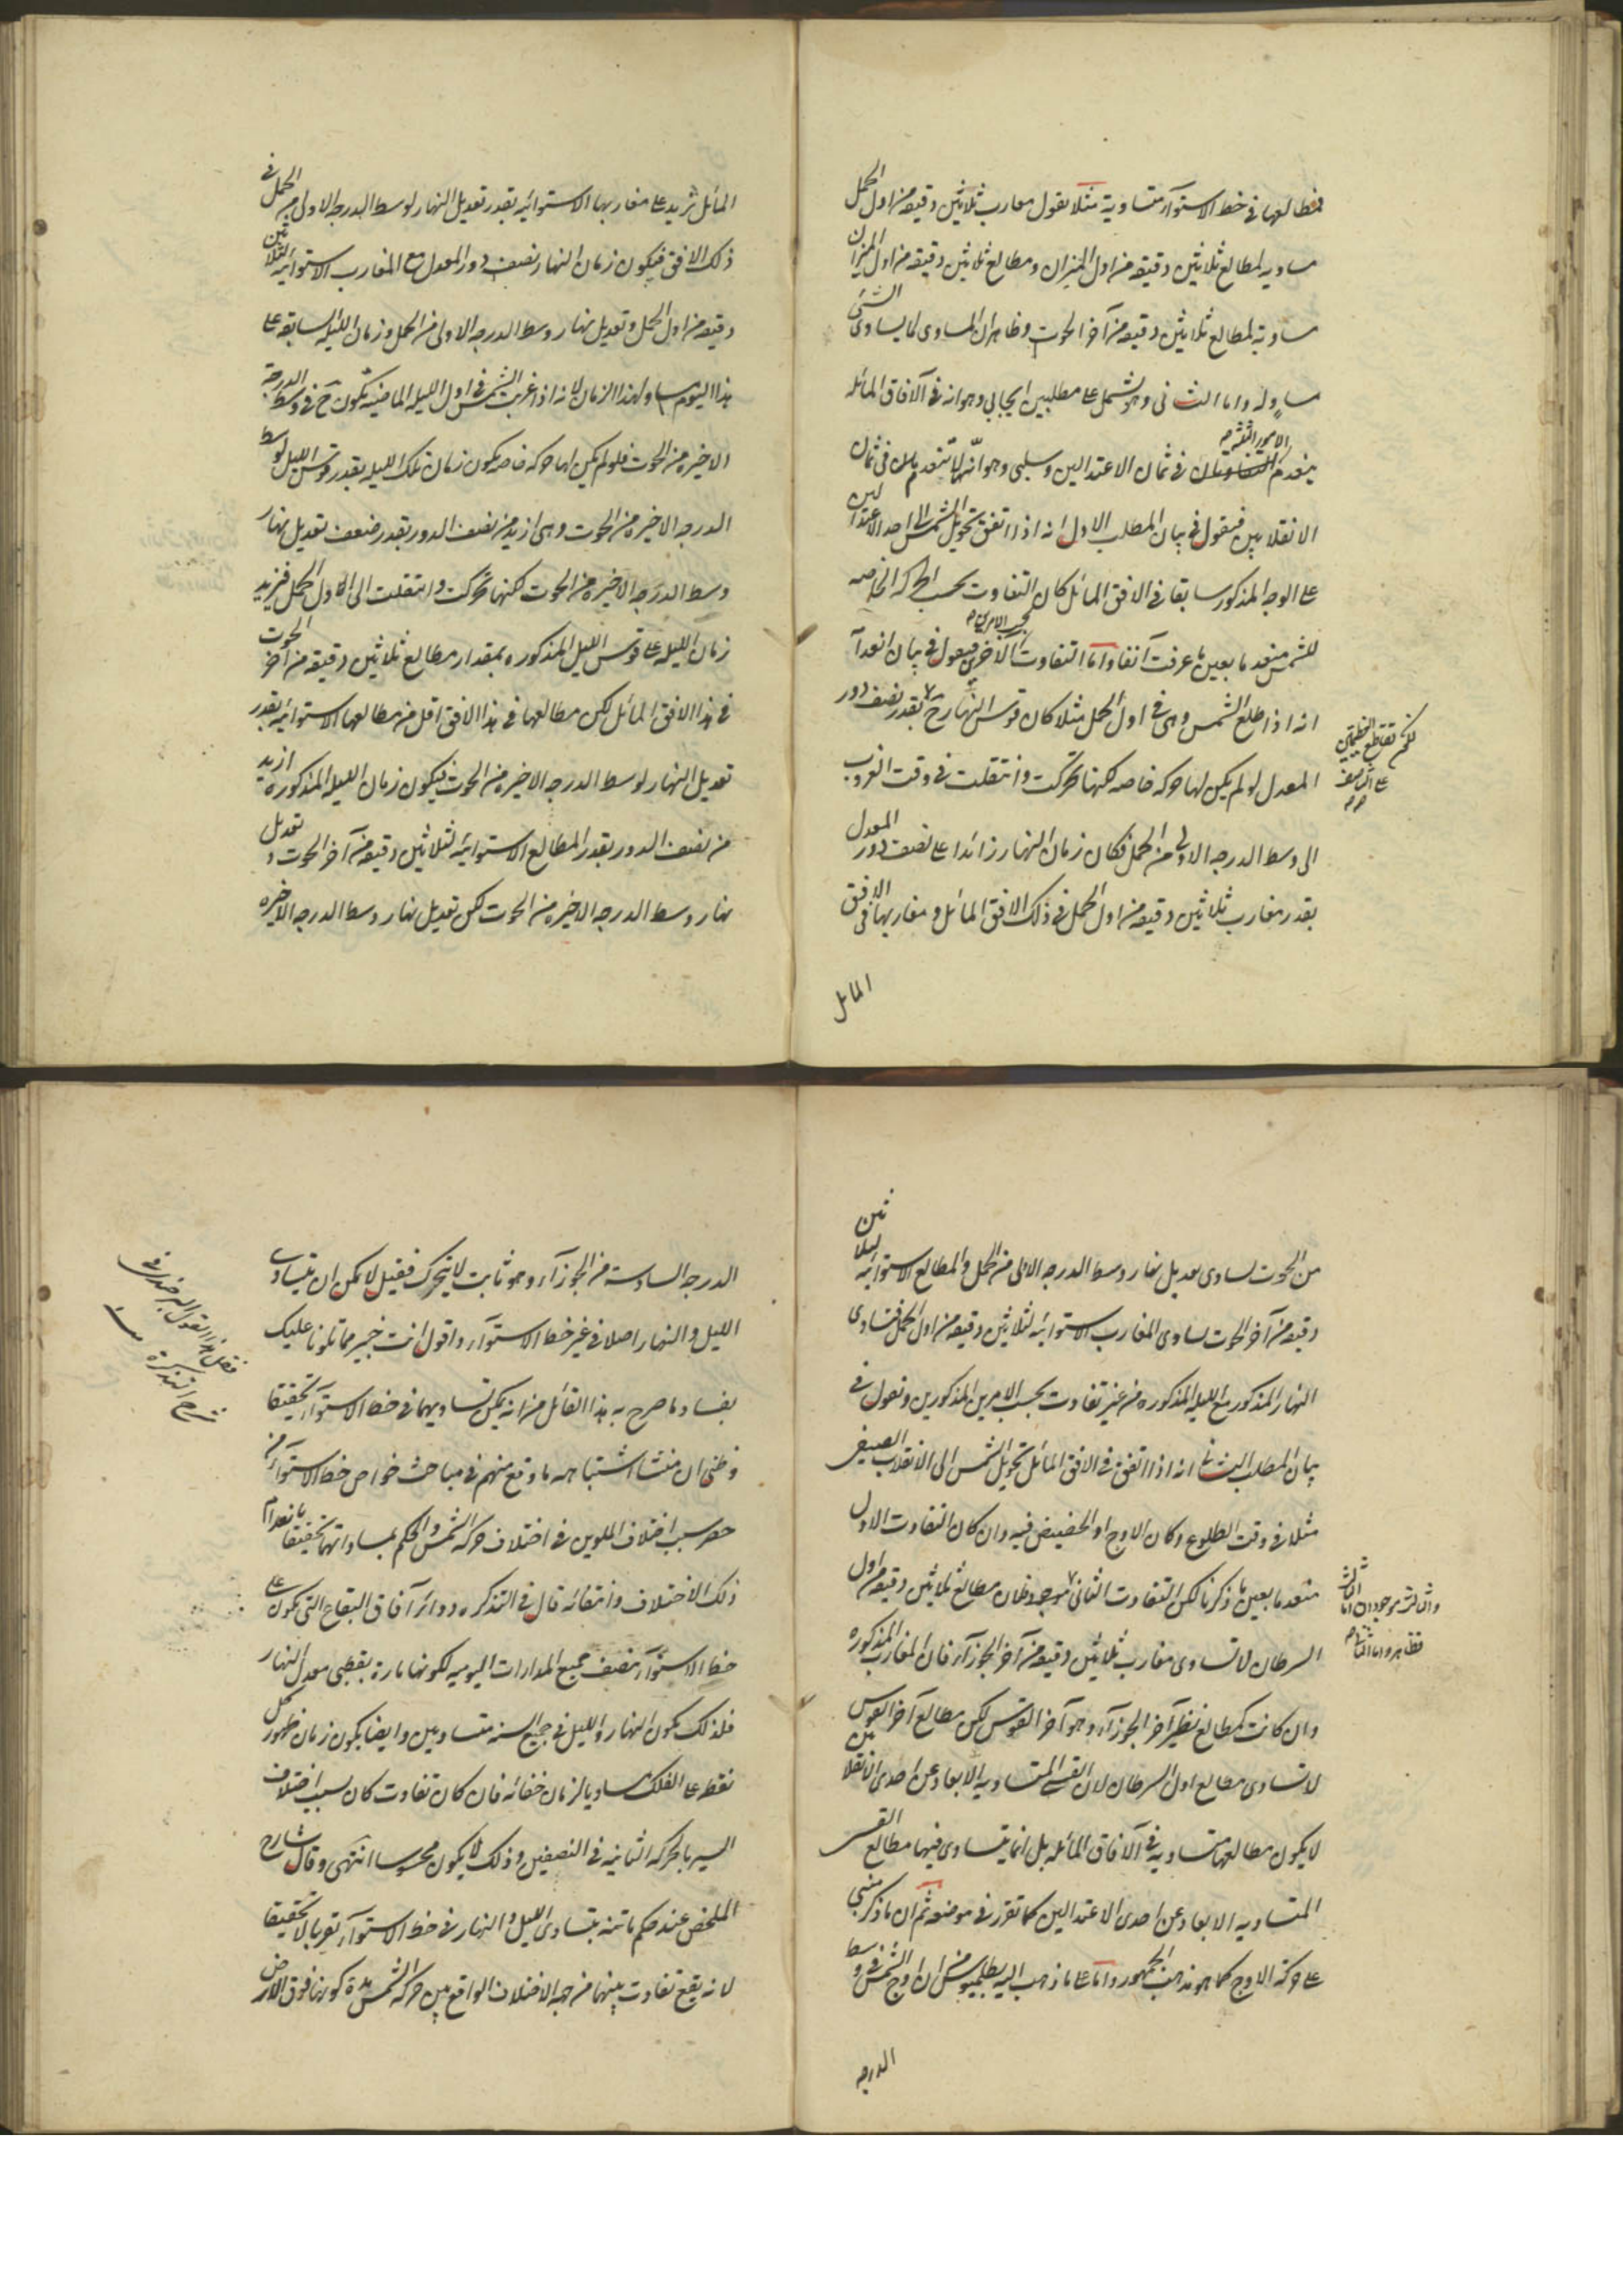 فمطالعها فى خط الاستوآء متساوية مثلا نقول مغارب ثلاثين دقيقه من اول الحمل
مساويه لمطالع ثلاثين دقيقه من اول الميزان ومطالع ثلاثين دقيقه من اول الميزان
مساوية لمطالع ثلاثين دقيقه من آخر الحوت وظاهر ان المساوى لما يساوى الشئ
مساوٍ له واما الثانى وهو يشتمل على مطلبين ايجابى وهو انه فى الآفاق المائله
ينعدم الامور الثلثة فى ثمان الاعتدالين وسلبى وهو انه لا تنعدم فى ثمان
الانقلابين فنقول فى بيان المطلب الاول انه اذا اتفق تحويل الشمس الى احد الاعتدالين
على الوجه المذكور سابقا فى الافق المائل كان التفاوت بحسب الحركه الخاصه
للشمس منعدما بعين ما عرفت آنفا واما التفاوت بحسب الامرين الآخرين فنقول فى بيان انعدا
لكم تقاطع العظيمتين
على التناصف
انه اذا طلع الشمس وهى فى اول الحمل مثلا كان قوس النهار ح بقدر نصف دور
المعدل لو لم يكن لها حركه خاصه لكنها تحركت وانتقلت فى وقت الغروب
الى وسط الدرجه الاولى من الحمل فكان زمان النهار زائدا على نصف دور المعدل
بقدر مغارب ثلاثين دقيقه من اول الحمل فى ذلك الافق المائل ومغاربها فى الافق
المائل
المائل تزيد على مغاربها الاستوائيه بقدر تعديل النهار لوسط الدرجه الاولى من الحمل فى
ذلك الافق فيكون زمان النهار نصف دور المعدل مع المغارب الاستوائيه لثلاثين
دقيقه من اول الحمل وتعديل نهار وسط الدرجه الاولى من الحمل وزمان الليله السابقه على
هذا اليوم مساو لهذا الزمان لانه اذا غربت الشمس فى اول الليله الماضيه تكون ح فى وسط الدرجة
الاخيره من الحوت فلو لم يكن لها حركه خاصه يكون زمان تلك الليله بقدر قوس الليل لوسط
الدرجه الاخيره من الحوت وهى ازيد من نصف الدور بقدر ضعف تعديل نهار
وسط الدرجه الاخيره من الحوت لكنها تحركت وانتقلت الى اول الحمل فيزيد
زمان الليله على قوس الليل المذكوره بمقدار مطالع ثلاثين دقيقه من آخر الحوت
فى هذا الافق المائل لكن مطالعها فى هذا الافق اقل من مطالعها الاستوائيه بقدر
تعديل النهار لوسط الدرجه الاخيره من الحوت فيكون زمان الليله المذكوره ازيد
من نصف الدور بقدر المطالع الاستوائيه لثلاثين دقيقه من آخر الحوت و تعديل
نهار وسط الدرجه الاخيره من الحوت لكن تعديل نهار وسط الدرجه الاخيره
من الحوت يساوى تعديل نهار وسط الدرجه الاولى من الحمل والمطالع الاستوائيه لثلاثين
دقيقه من آخر الحوت يساوى المغارب الاستوائيه لثلاثين دقيقه من اول الحمل فتساوى
النهار المذكور مع الليله المذكوره من غير تفاوت بحسب الامرين المذكورين ونقول فى
بيان المطلب الثانى انه اذا اتفق فى الافق المائل تحويل الشمس الى الانقلاب الصيفى
مثلا فى وقت الطلوع وكان الاوج او الحضيض فيه وان كان التفاوت الاول
منعدما بعين ما ذكرنا لكن التفاوت الثانى موجود فان مطالع ثلاثين دقيقه من اول
السرطان لا تساوى مغارب ثلاثين دقيقه من آخر الجوزآء فان المغارب المذكوره
وان كانت كمطالع نظير آخر الجوزآء وهو آخر القوس لكن مطالع آخر القوس
لا تساوى مطالع اول السرطان لان القسى المتساويه الابعاد عن احدى الانقلابين
لا يكون مطالعها متساويه فى الآفاق المائله بل انما يتساوى فيها مطالع القسى
المتساويه الابعاد عن احدى الاعتدالين كما تقرر فى موضعه ثم ان ما ذكر مبنى
على حركة الاوج كما هو مذهب الجمهور واما على ما ذهب اليه بطلميوس من ان اوج الشمس فى وسط
الدرجه
الدرجه السادسة من الجوزآء وهو ثابت لا يتحرك فقيل لا يمكن ان يتساوى
الليل والنهار اصلا فى غير خط الاستوآء واقول انت خبير مما تلونا عليك
بفساد ما صرح به هذا القائل من انه يمكن تساويهما فى خط الاستوآء تحقيقا
وظنى ان منشأ اشتباهه ما وقع منهم فى مباحث خواص خط الاستوآء من
حصر سبب اختلاف الملوين فى اختلاف حركه الشمس والحكم بمساواتهما تحقيقا بانعدام
ذلك الاختلاف وانتفائه قال فى التذكره ودوائر آفاق البقاع التى يكون على
خط الاستوآء منصف جميع المدارات اليوميه لكونها مارة بقطبى معدل النهار
فلذلك يكون النهار والليل فى جميع السنه متساويين وايضا يكون زمان ظهور كل
نقطه على الفلك مساويا لزمان خفائه فان كان تفاوت كان بسبب اختلاف
السير بالحركه الثانيه فى النصفين وذلك لا يكون محسوسا انتهى وقال شارح
الملخص عند حكم ماتنه بتساوى الليل والنهار فى خط الاستوآء تقريبا لا تحقيقا
لانه يقع تفاوت بينهما من جهه الاختلاف الواقع بين حركه الشمس مدة كونها فوق الارض